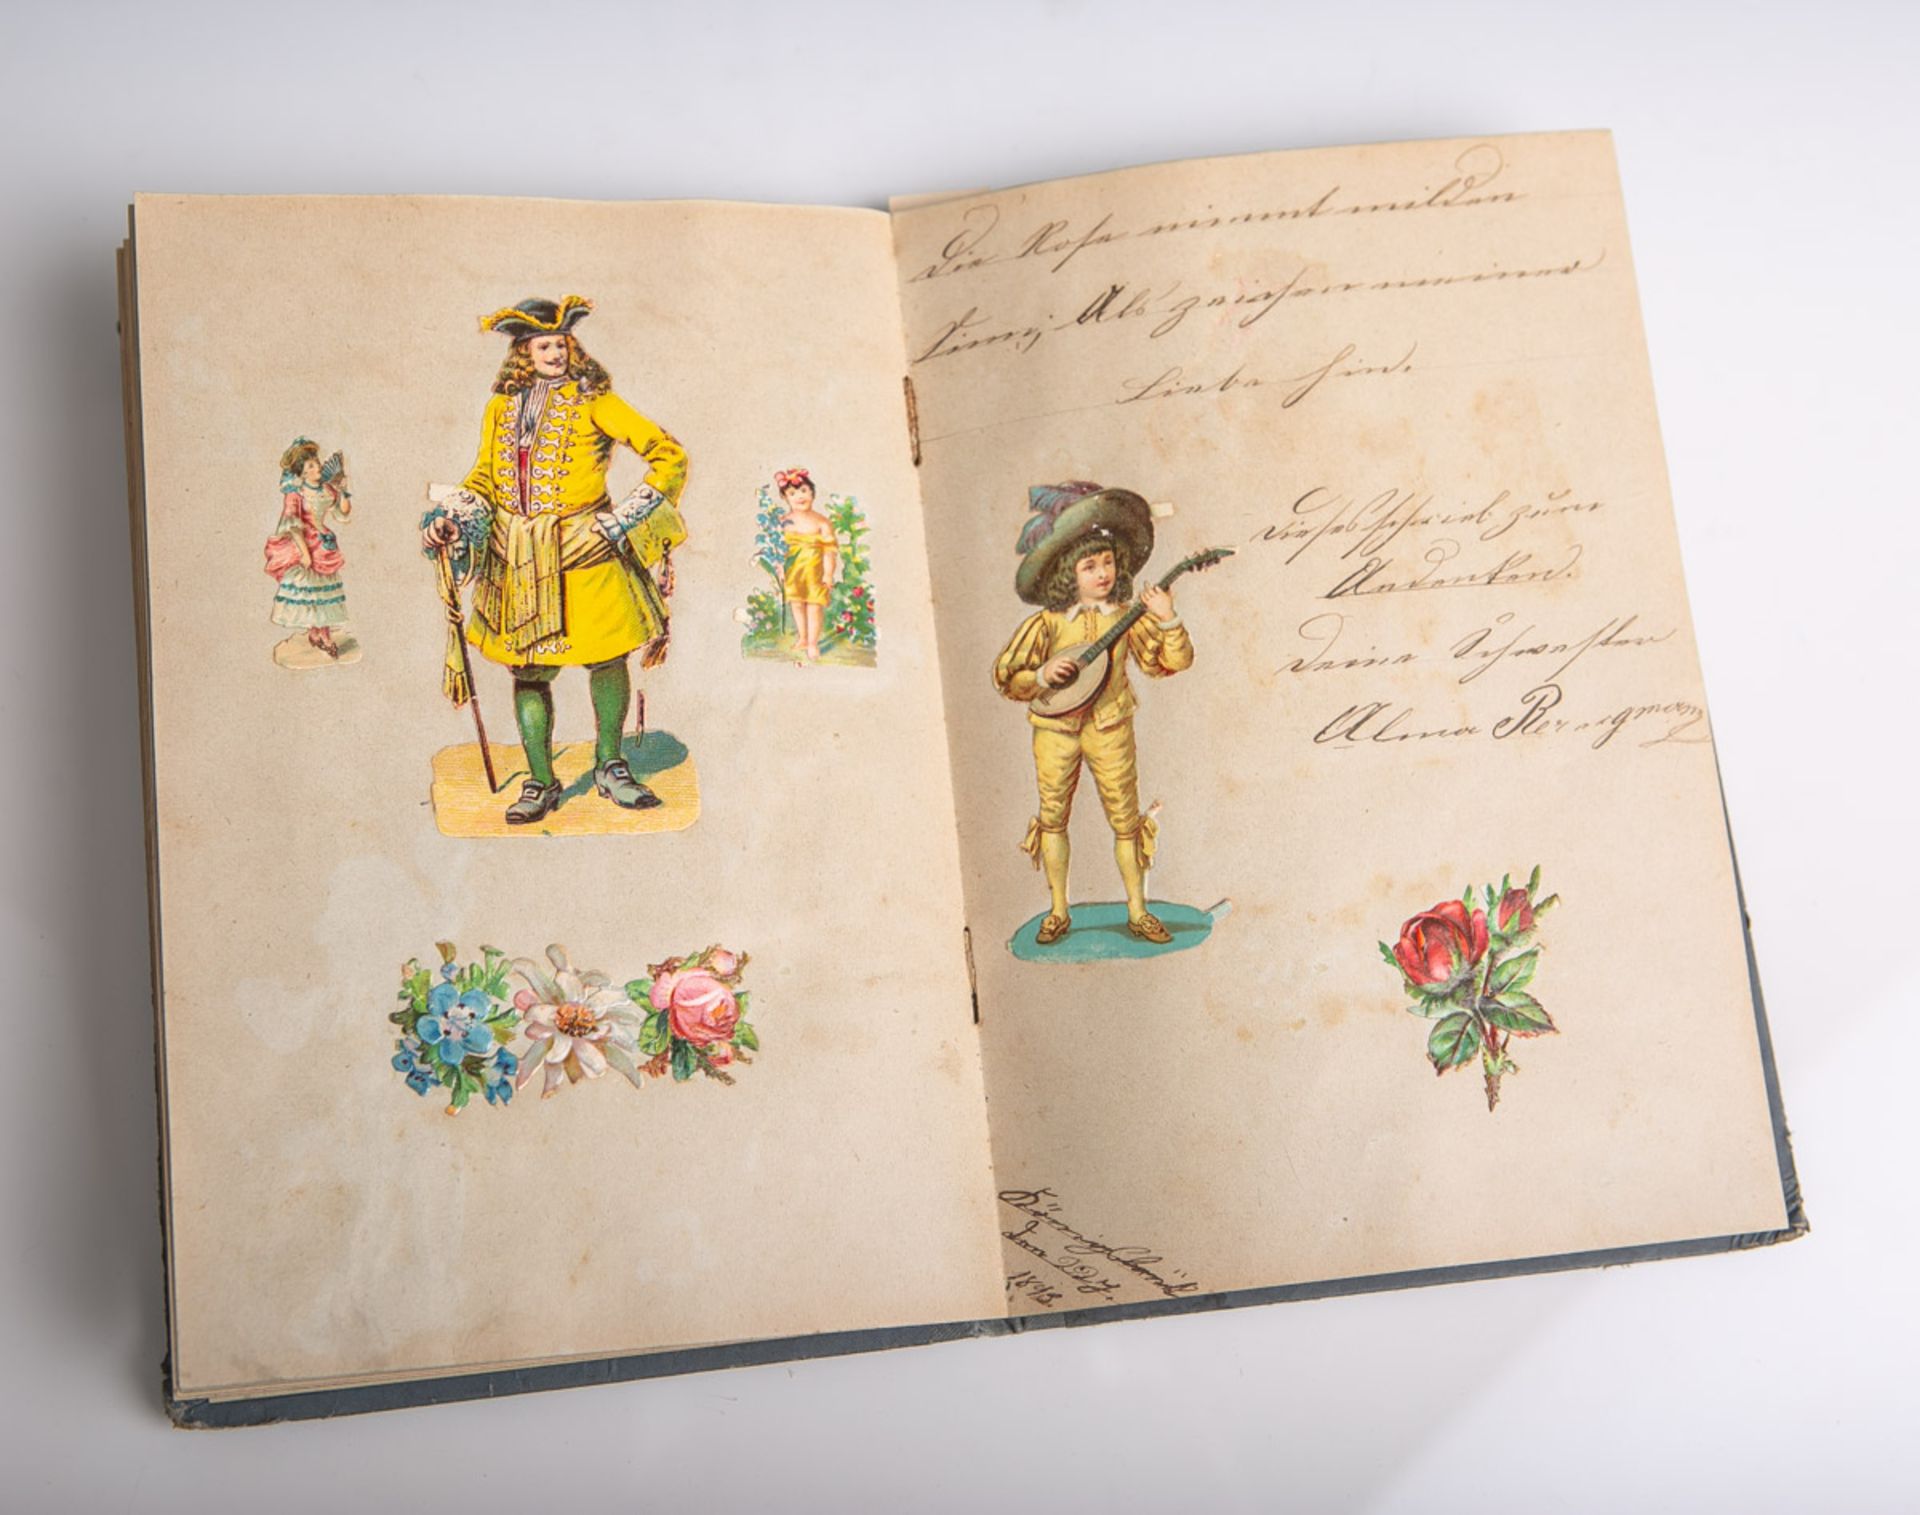 Die Rose nimmt milden
Sinn; Als zeichen meiner
Liebe hin.
Dieses schrieb zum
Andenken.
Deine Schwester
Alma Bergmann
den